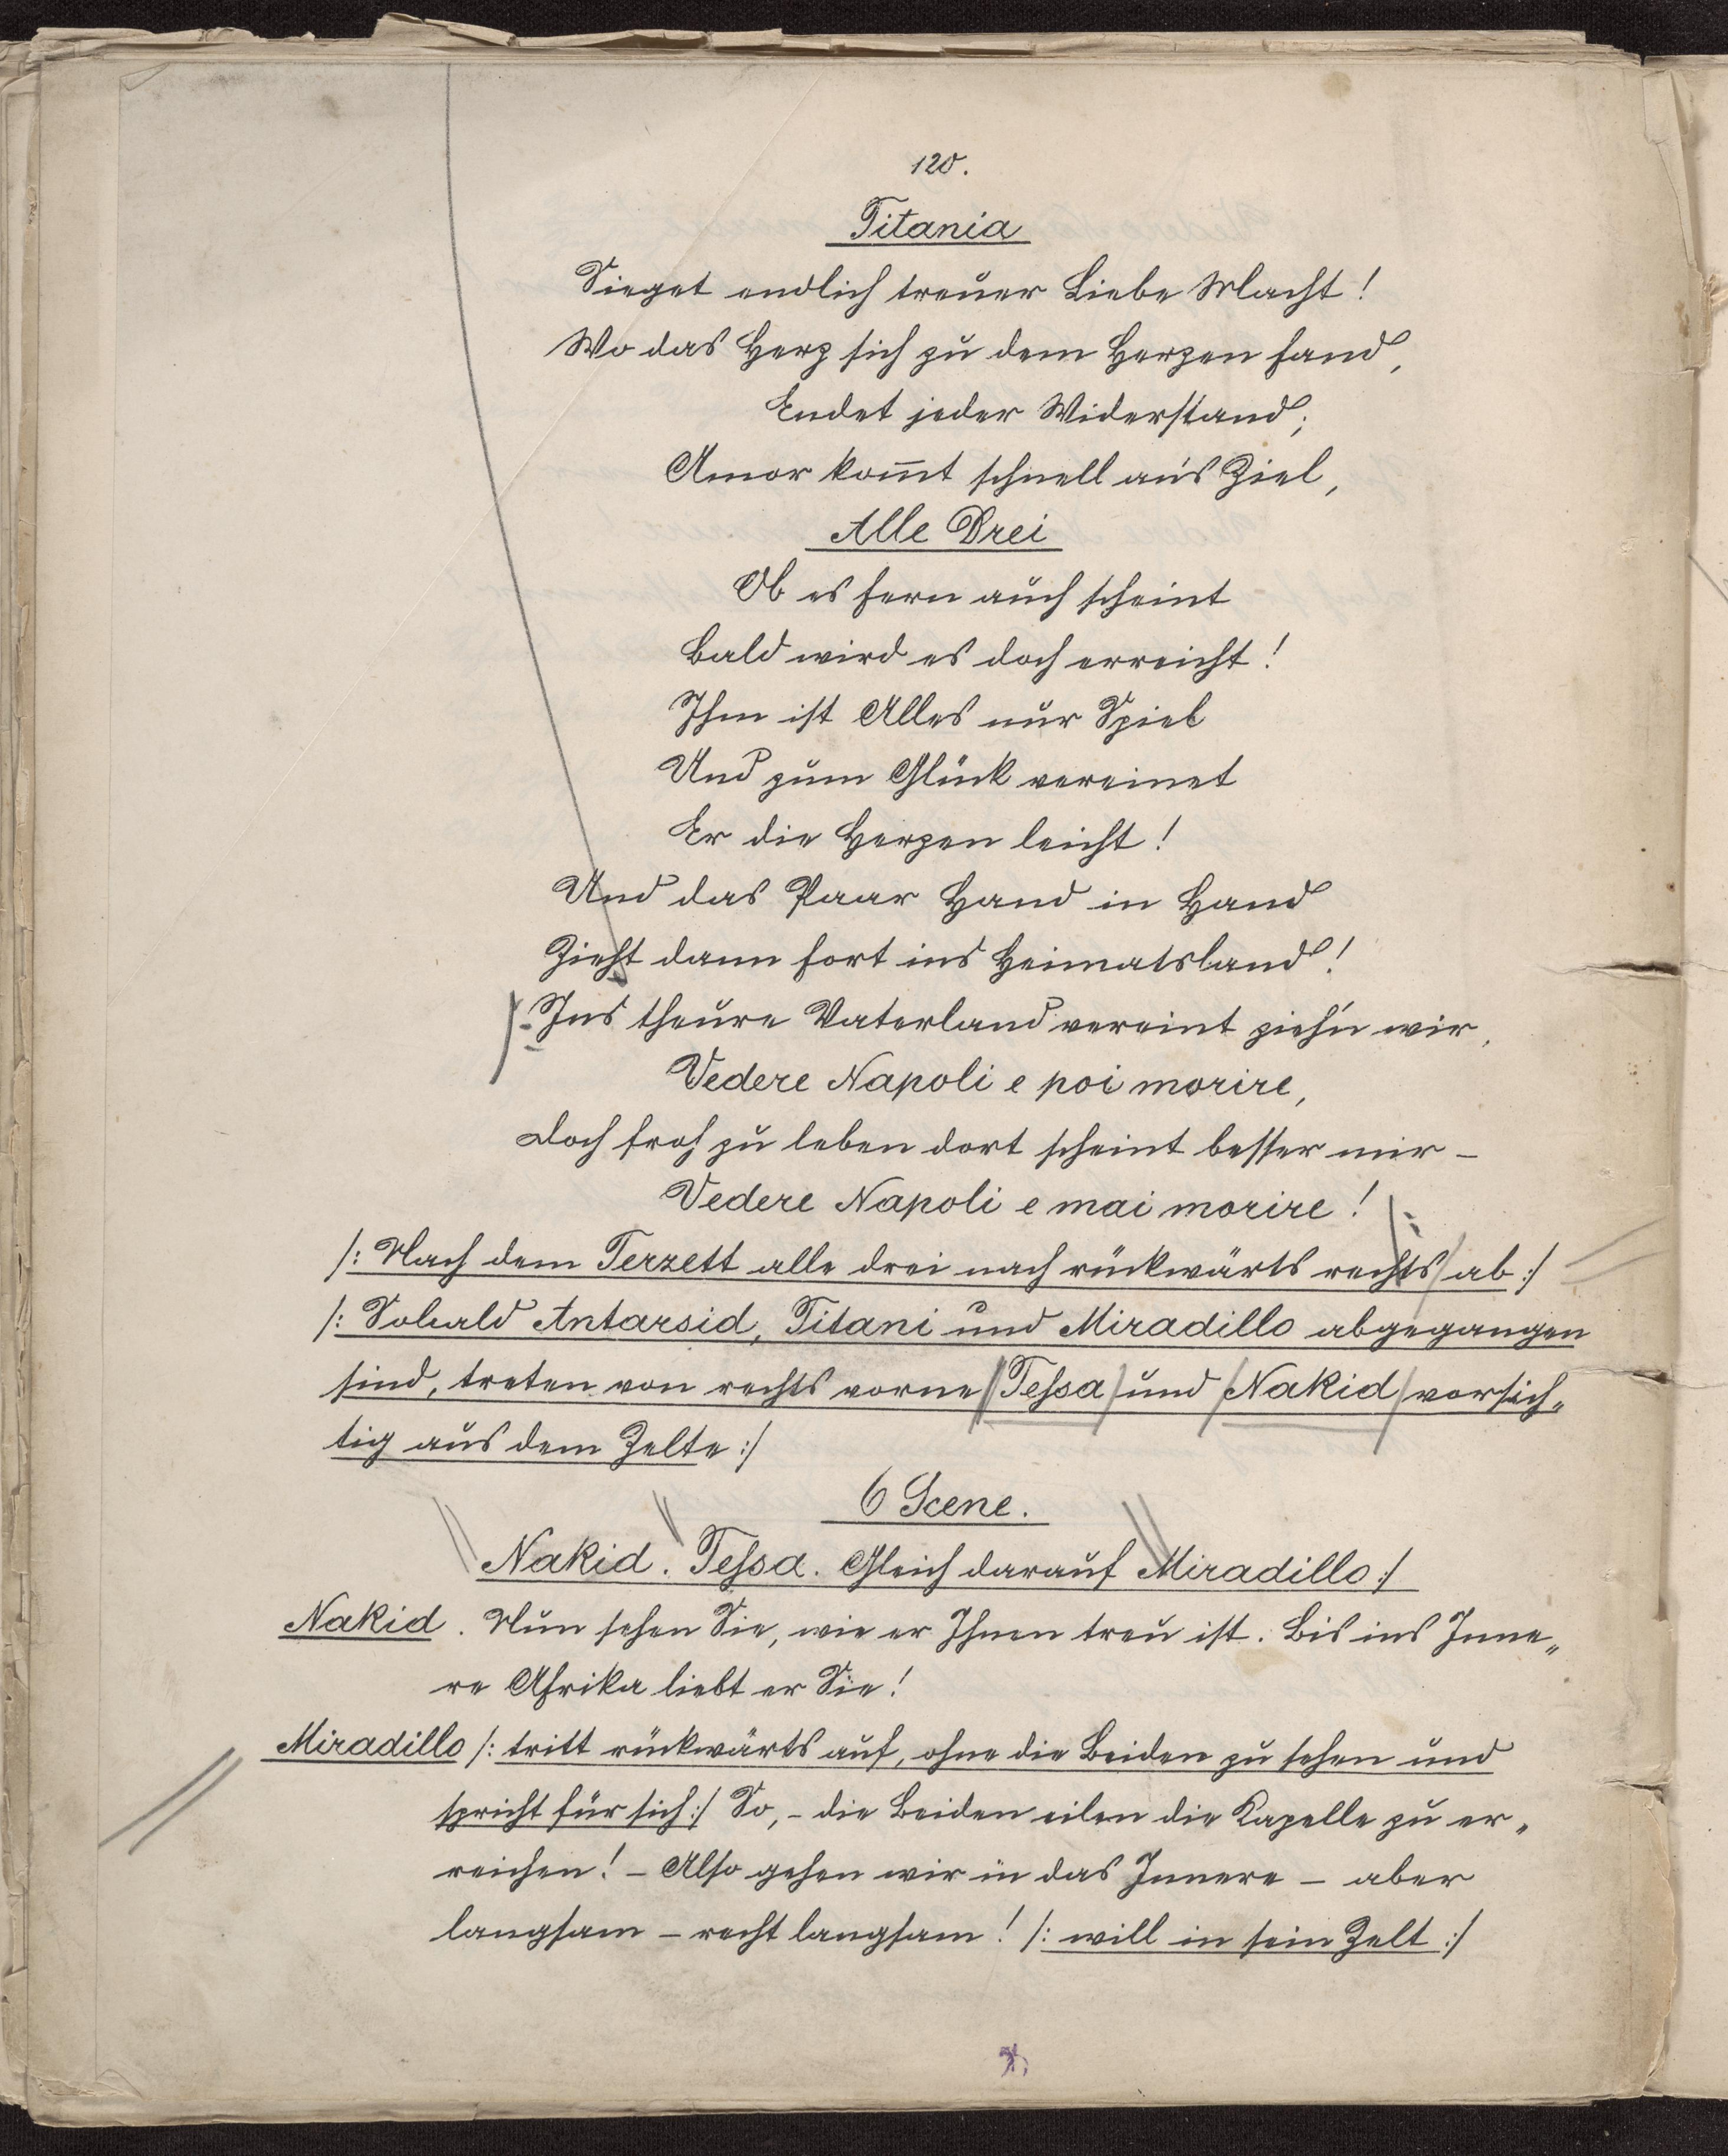 120.
Titania
Sieget endlich treuer Liebe Macht!
Wo das Herz sich zu dem Herzen fand,
Endet jeder Widerstand;
Amor kom̄t schnell an's Ziel,
Alle Drei
Ob es fern auch scheint
Bald wird es doch erreicht!
Ihm ist Alles nur Spiel
Und zum Glück vereinet
Er die Herzen leicht!
Und das Paar Hand in Hand
Zieht dann fort ins Heimatsland!
/: Ins theure Vaterland vereint zieh'n wir,
Vedere Napoli e poi morire,
Doch froh zu leben dort scheint besser mir –
Vedere Napoli e mai morire! :/
/: Nach dem Terzett alle drei nach rückwärts rechts ab :/
/: Sobald Antarsid, Titani und Miradillo abgegangen
sind, treten von rechts vorne Teſsa und Nakid vorsich„
tig aus dem Zelte :/
6 Scene.
Nakid. Teſsa. Gleich darauf Miradillo :/
Nakid. Nun sehen Sie, wie er Ihnen treu ist. Bis ins Inne„
re Afrika liebt er Sie!
Miradillo /: tritt rückwärts auf, ohne die Beiden zu sehen und
spricht für sich :/ So, – die Beiden eilen die Kapelle zu er„
reichen! – Also gehen wir in das Innere – aber
langsam – recht langsam! /: will in sein Zelt :/